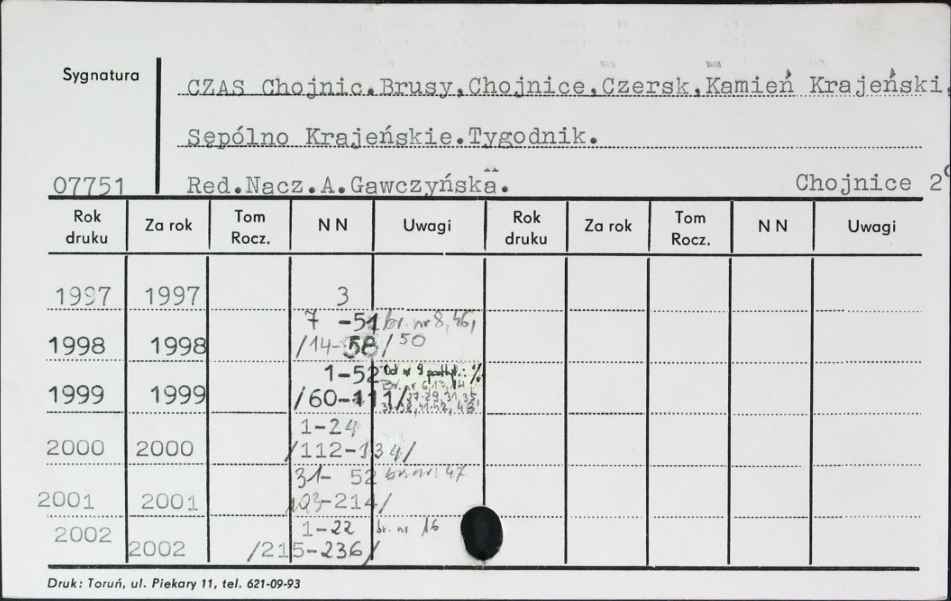 Sygnatura
CZAS Chojnic.Brusy,Chojnice,Czersk,Kamień Krajeński,
Sępólno Krajeńskie.Tygodnik.
07751 Red.Nacz.A.Gawczyńska. Chojnice 2°
Rok druku Za rok Tom Rocz. NN Uwagi Rok druku Za rok Tom Rocz. NN Uwagi
1997 1997 3
7 -51 br. nr 8, 46,
1998 1998 /14-58/ 50
1-52 Od nr 9 podtyt.:
1999 1999 /60-111/
1-24
2000 2000 /112-134/
31- 52 br. nr 47
2001 2001 -214/
2002 1-22 br. nr 16
2002 /215-236/
Druk: Toruń, ul. Piekary 11, tel. 621-09-93